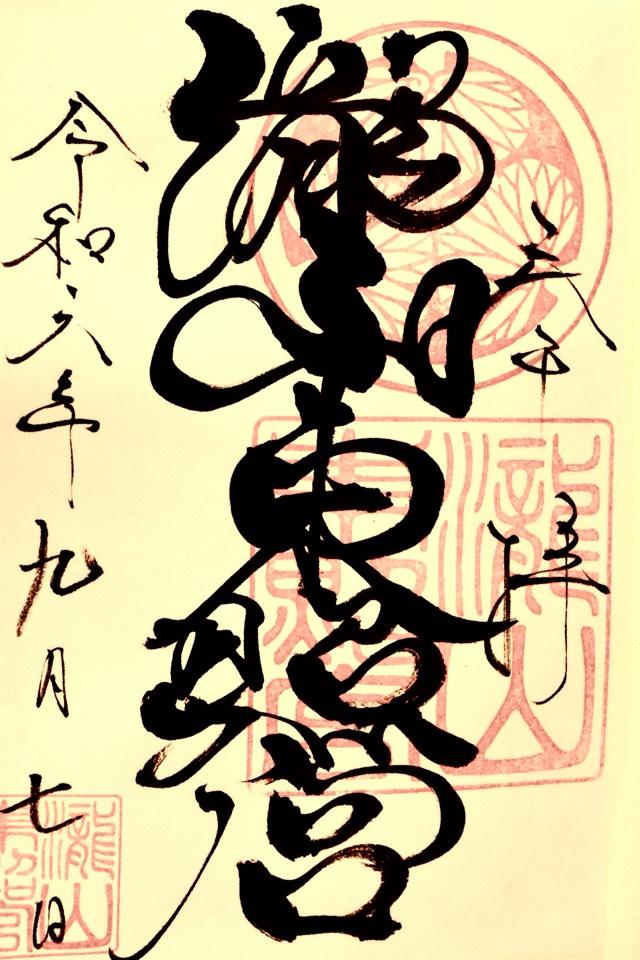 奉拝
瀧山東照宮
令和六年九月七日
瀧山東照宮
瀧山東照宮